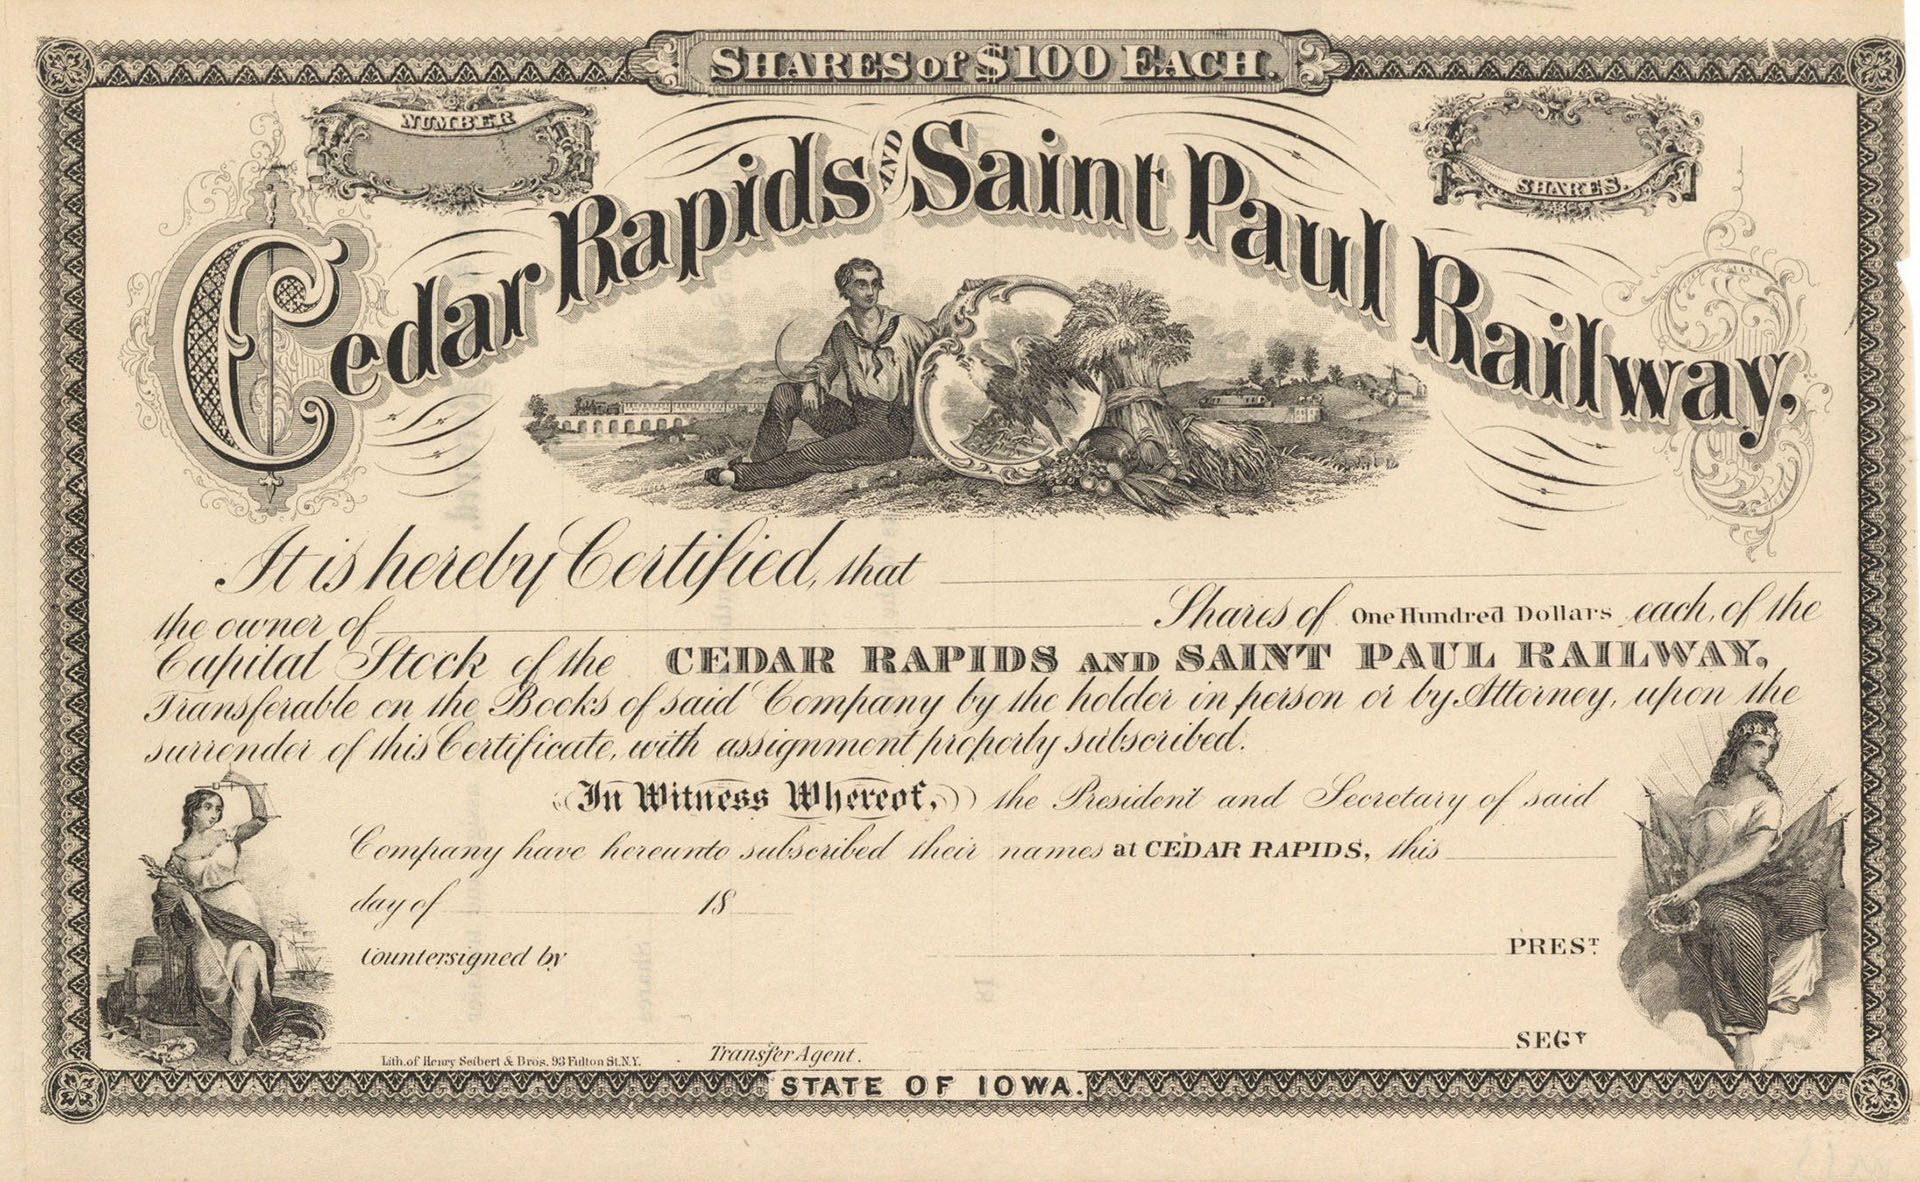 SHARES of $100 EACH.
NUMBER
SHARES.
Cedar Rapids AND Saint Paul Railway.
It is hereby Certified, that
the owner of Shares of One Hundred Dollars each, of the
Capital Stock of the CEDAR RAPIDS AND SAINT PAUL RAILWAY,
Transferable on the Books of said Company by the holder in person or by Attorney, upon the
surrender of this Certificate, with assignment properly subscribed.
In Witness Whereof, the President and Secretary of said
Company have hereunto subscribed their names at CEDAR RAPIDS, this
day of 18
Countersigned by
PREST.
SECY
Lith. of Henry Seibert & Bros. 93 Fulton St. N.Y.
Transfer Agent.
STATE OF IOWA.